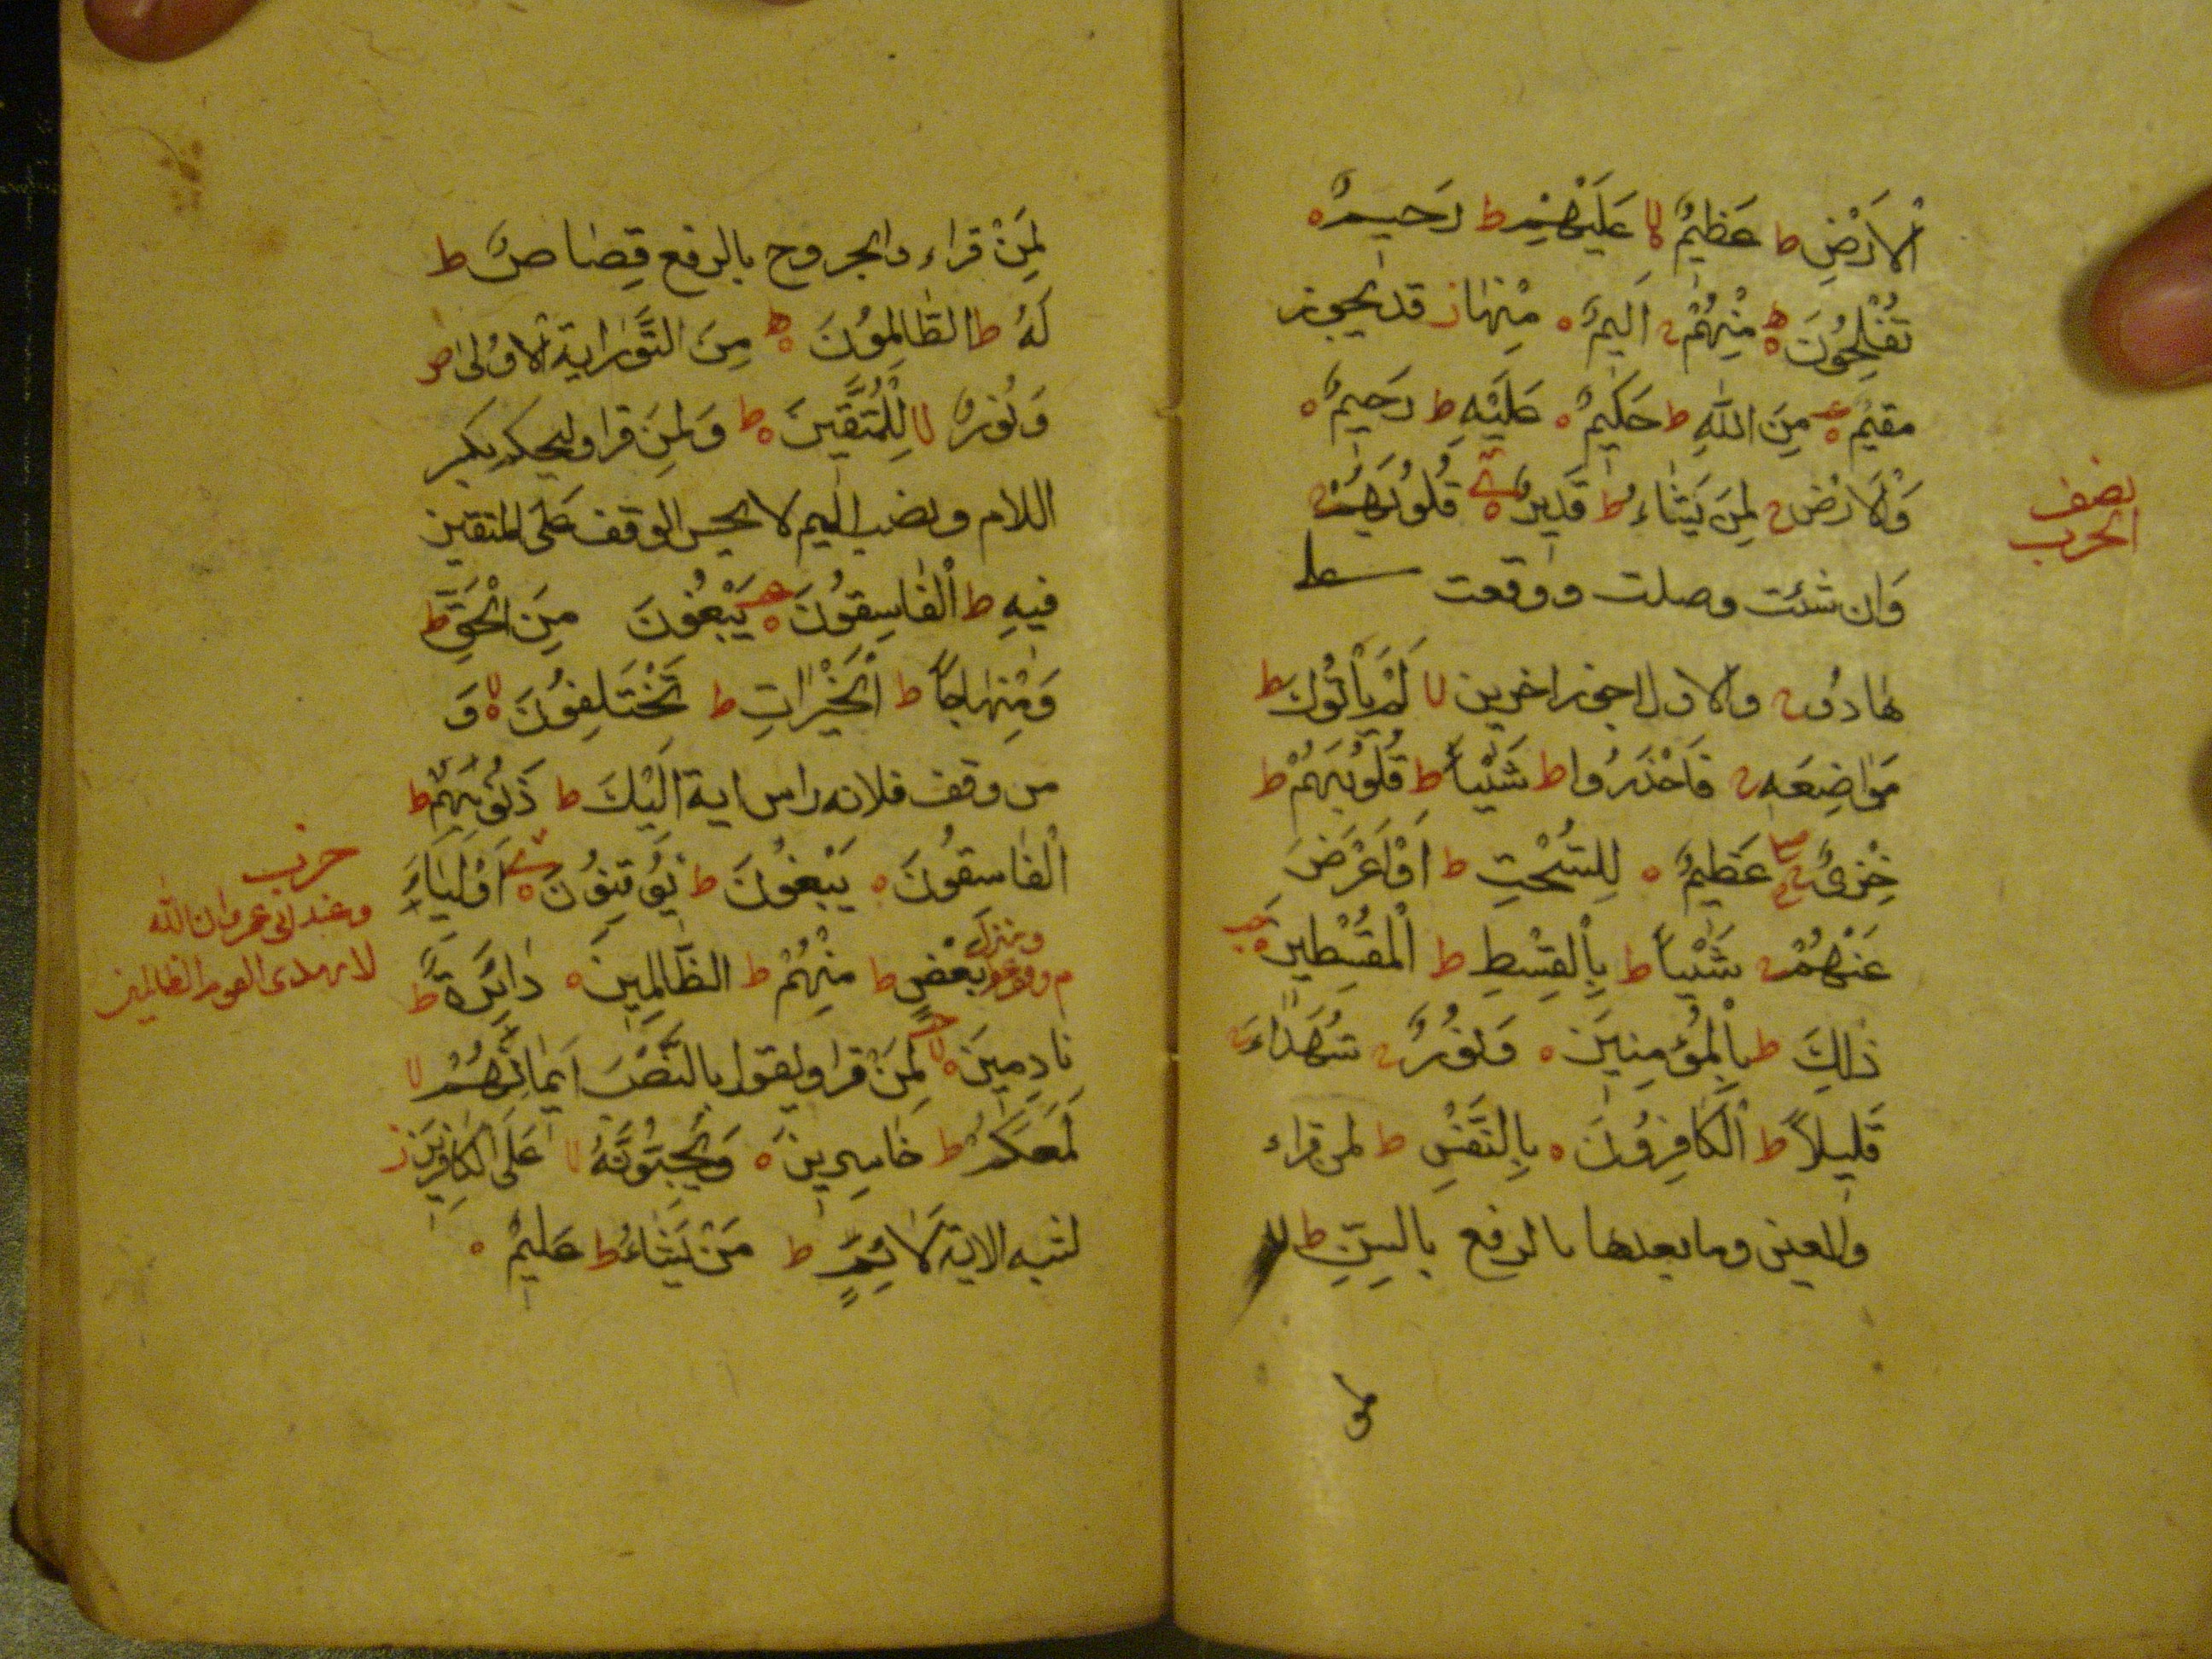 الْاَرْضِ ط عَظِيمٌ لا عَلَيْهِمْ ط رَحِيمٌ ه
تُفْلِحُونَ ه مِنْهُمْ ج اَلِيمٌ ه مِنْهَا ز قد يجوز
مقِيمٌ ه مِنَ اللّٰهِ ط حَكِيمٌ ه عَلَيْهِ ط رَحِيمٌ ه
وَالْاَرْض ج لِمَنْ يَشَاءُ ط قَدِيرٌ ه قُلُوبُهُمْ ج
نصف
الحزب
وَان شئت وصلت ووقفت على
هَادُوا ج والاول اجوز اخرين لا لَمْ يَأْتُوكَ ط
مَوَاضِعَهِ ج فَاحْذَرُوا ط شَيْئاً ط قُلُوبَهُمْ ط
خِزْىٌ ج عَظِيمٌ ه لِلسُّحْتِ ط اَوْ اَعْرِضْ
عَنْهُمْ ج شَيْئاً ط بِالْقِسْطِ ط الْمُقْسِطِين ه
ذٰلِكَ ط بِالْمُؤْمِنِينَ ه وَنُورٌ ج شُهَدَاءَ ج
قَلِيلاً ط الْكَافِرُونَ ه بِالنَّفْسِ ط لمن قراء
والعين وما بعدها بالرفع بالسِنِّ ط لا
لِمَنْ قراء والجروح بالرفع قِصَاصٌ ط
لَهُ ط الظَّالِمُونَ ه مِنَ التَّوْرٰية الاولى ص
وَنُورٌ لا لِلْمُتَّقِينَ ه ط وَلِمَن قرا وليحكم بكسر
اللام ونصب الميم لا يحسن الوقف عَلَى المتقين
فِيهِ ط الْفَاسِقُونَ ه يَبْغُونَ مِنَ الْحَقِّ ط
وَمِنْهَاجاً ط الْخَيْرَاتِ ط تَخْتَلِفُونَ ه لا وَ
من وقف فلانه راس اية اِلَيْكَ ط ذُنُوبِهِمْ ط
الْفَاسِقُونَ ه يَبْغُونَ ط يُوقِنُونَ ه اَوْلِيَاءَ
حزب
وعند ابى عمر وان الله
لا يهدى القوم الظالمين
بَعْضٍ ط مِنْهُمْ ط الظَّالِمِينَ ه دَائِرَةٌ ط
نَادِمِينَ ه لا لِمَنْ قرا ويقول بالنَّصْبَ اَيْمَانِهِمْ لا
لَمَعَكُمْ ط خَاسِرِينَ ه وَيُحِبُّونَهُ لا عَلَى الكَافِرِينَ ز
لشبه الاية لَائِمٍ ط مَنْ يَشَاءُ ط عَلِيمٌ ه